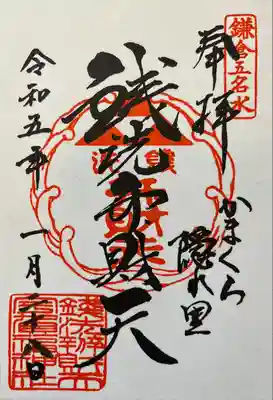 鎌倉五名水
奉拝
かまくら
隠れ里
銭洗弁財天
令和五年 一月二十八日